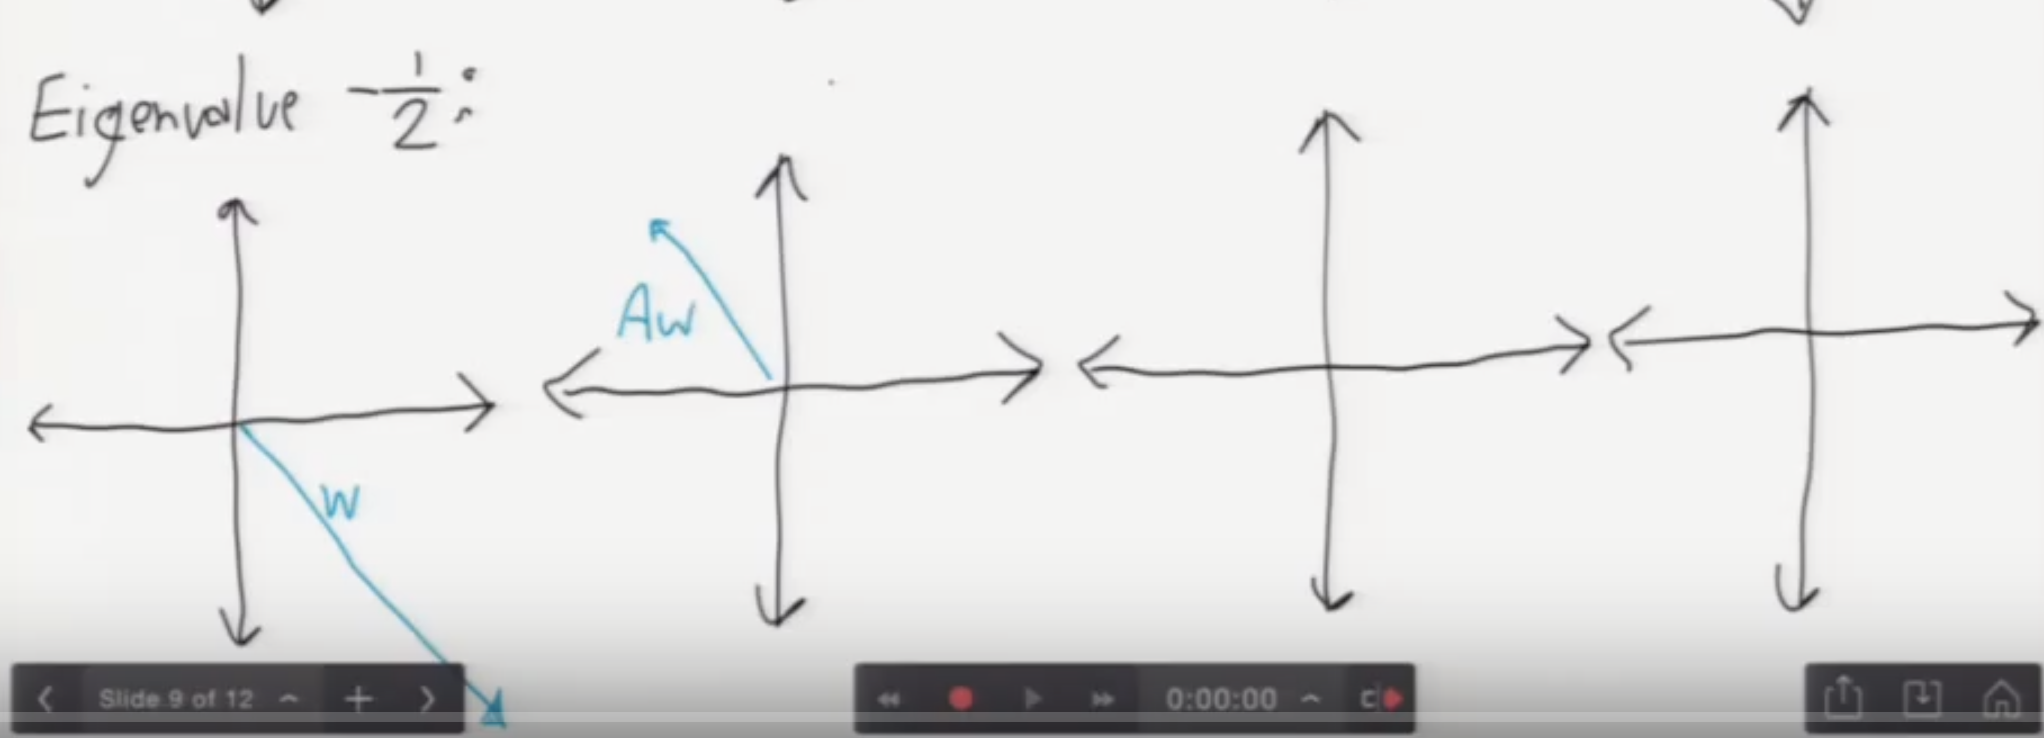 Eigenvalue -1/2:
Aw
w
Slide 9 of 12
0:00:00